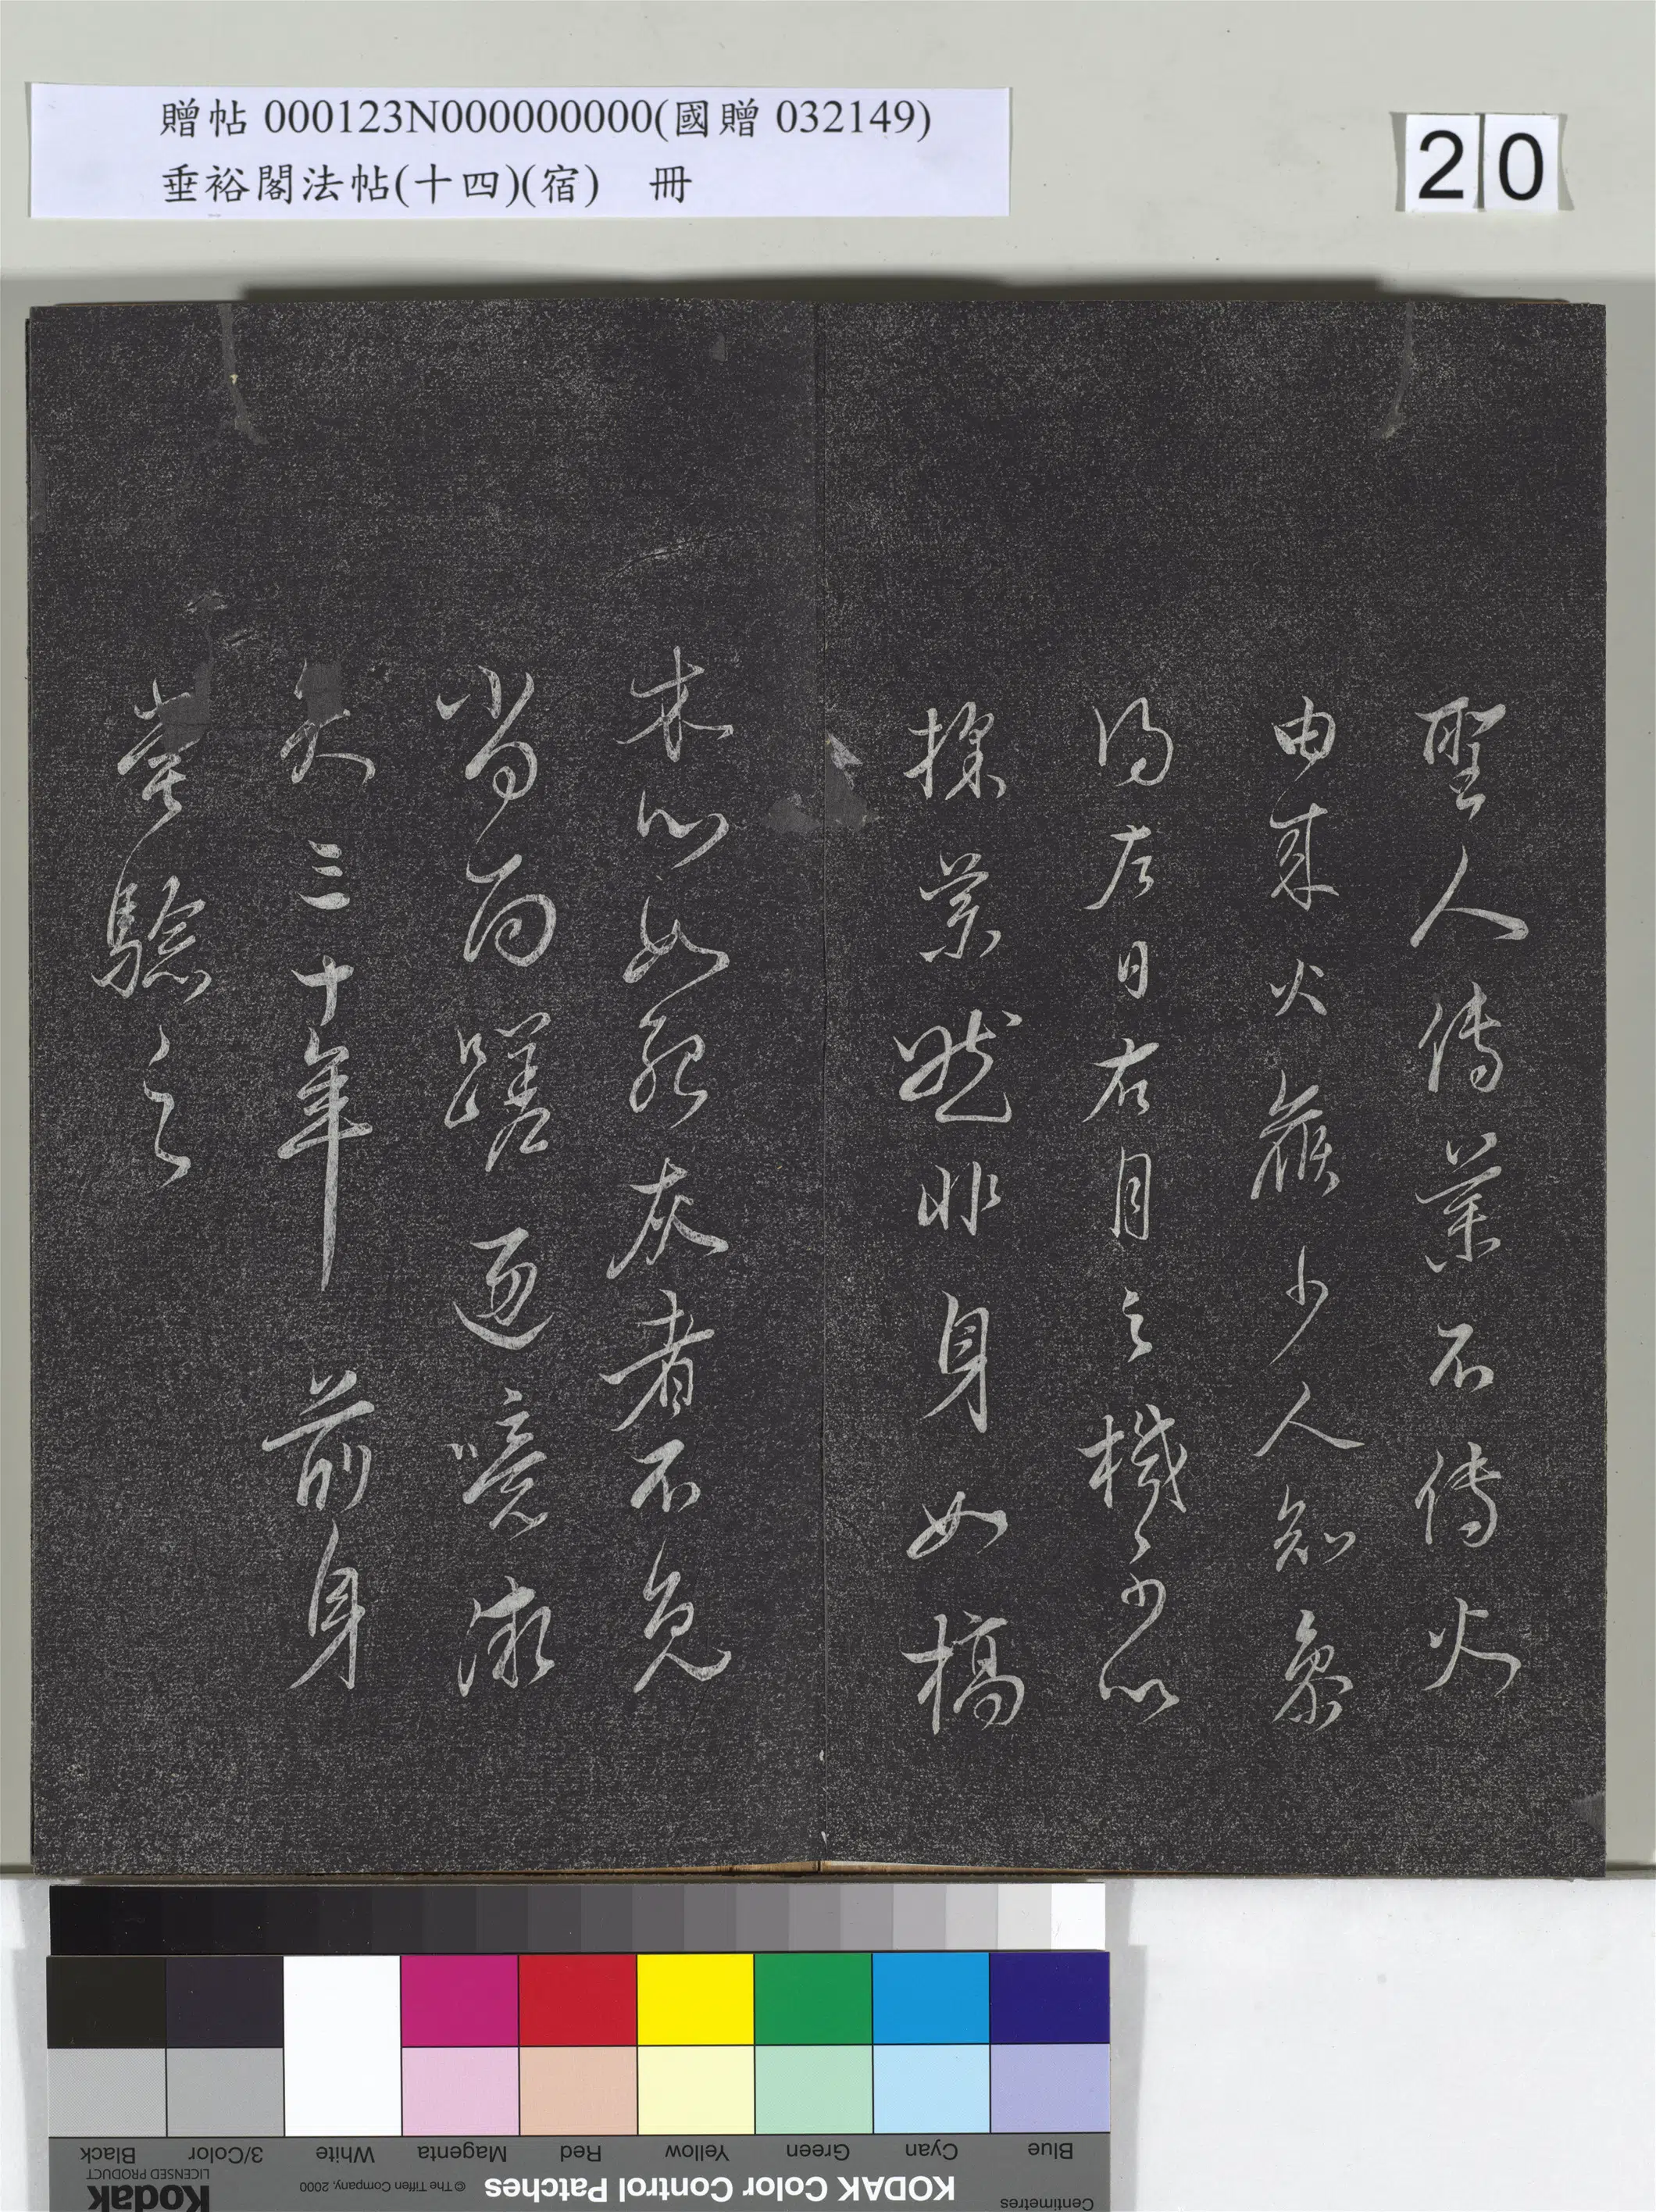 贈帖 000123N000000000(國贈 032149)
垂裕閣法帖(十四)(宿) 冊
20
聖人傳藥不傳火
由來火候少人知象
得左日右月之機心
採藥然非身如槁
木心如死灰者不免
當面蹉過噫微
矣三十年前身
嘗驗之
Black
3/Color
White
Magenta
Red
Yellow
Green
Cyan
Blue
Kodak
LICENSED PRODUCT
© The Tiffen Company, 2000
KODAK Color Control Patches
Centimetres